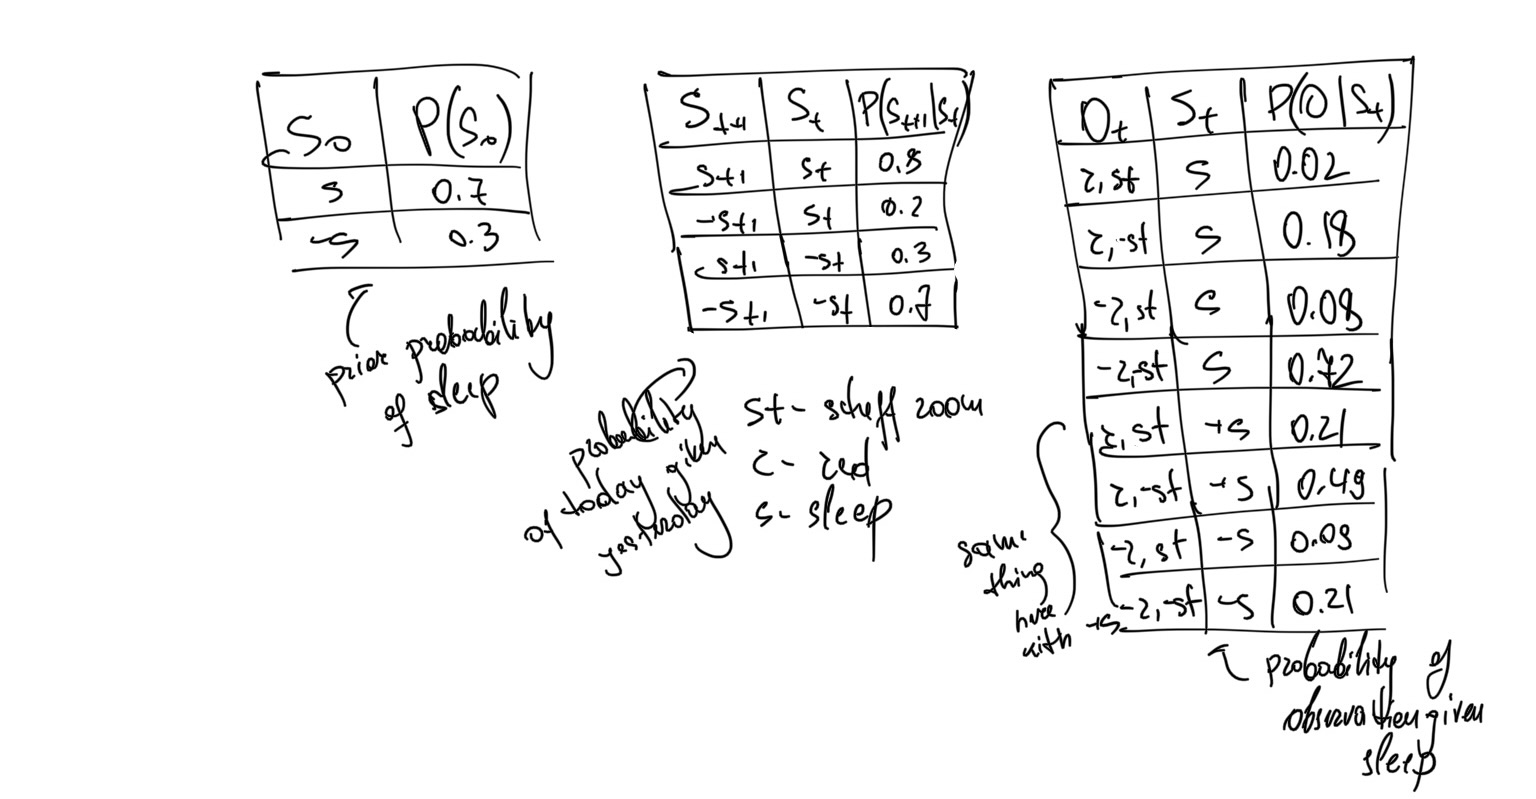 S₀ P(S₀)
s 0.7
¬s 0.3
prior probability
of sleep
S_t+1 S_t P(S_t+1|S_t)
s_t+1 s_t 0.8
¬s_t+1 s_t 0.2
s_t+1 ¬s_t 0.3
¬s_t+1 ¬s_t 0.7
probability
of today given
yesterday
st - stuff room
r - red
s - sleep
O_t S_t P(O|S_t)
r, st s 0.02
r, ¬st s 0.18
¬r, st s 0.08
¬r, ¬st s 0.72
r, st ¬s 0.21
r, ¬st ¬s 0.49
¬r, st ¬s 0.09
¬r, ¬st ¬s 0.21
same
thing
here
with ¬s
probability of
observation given
sleep